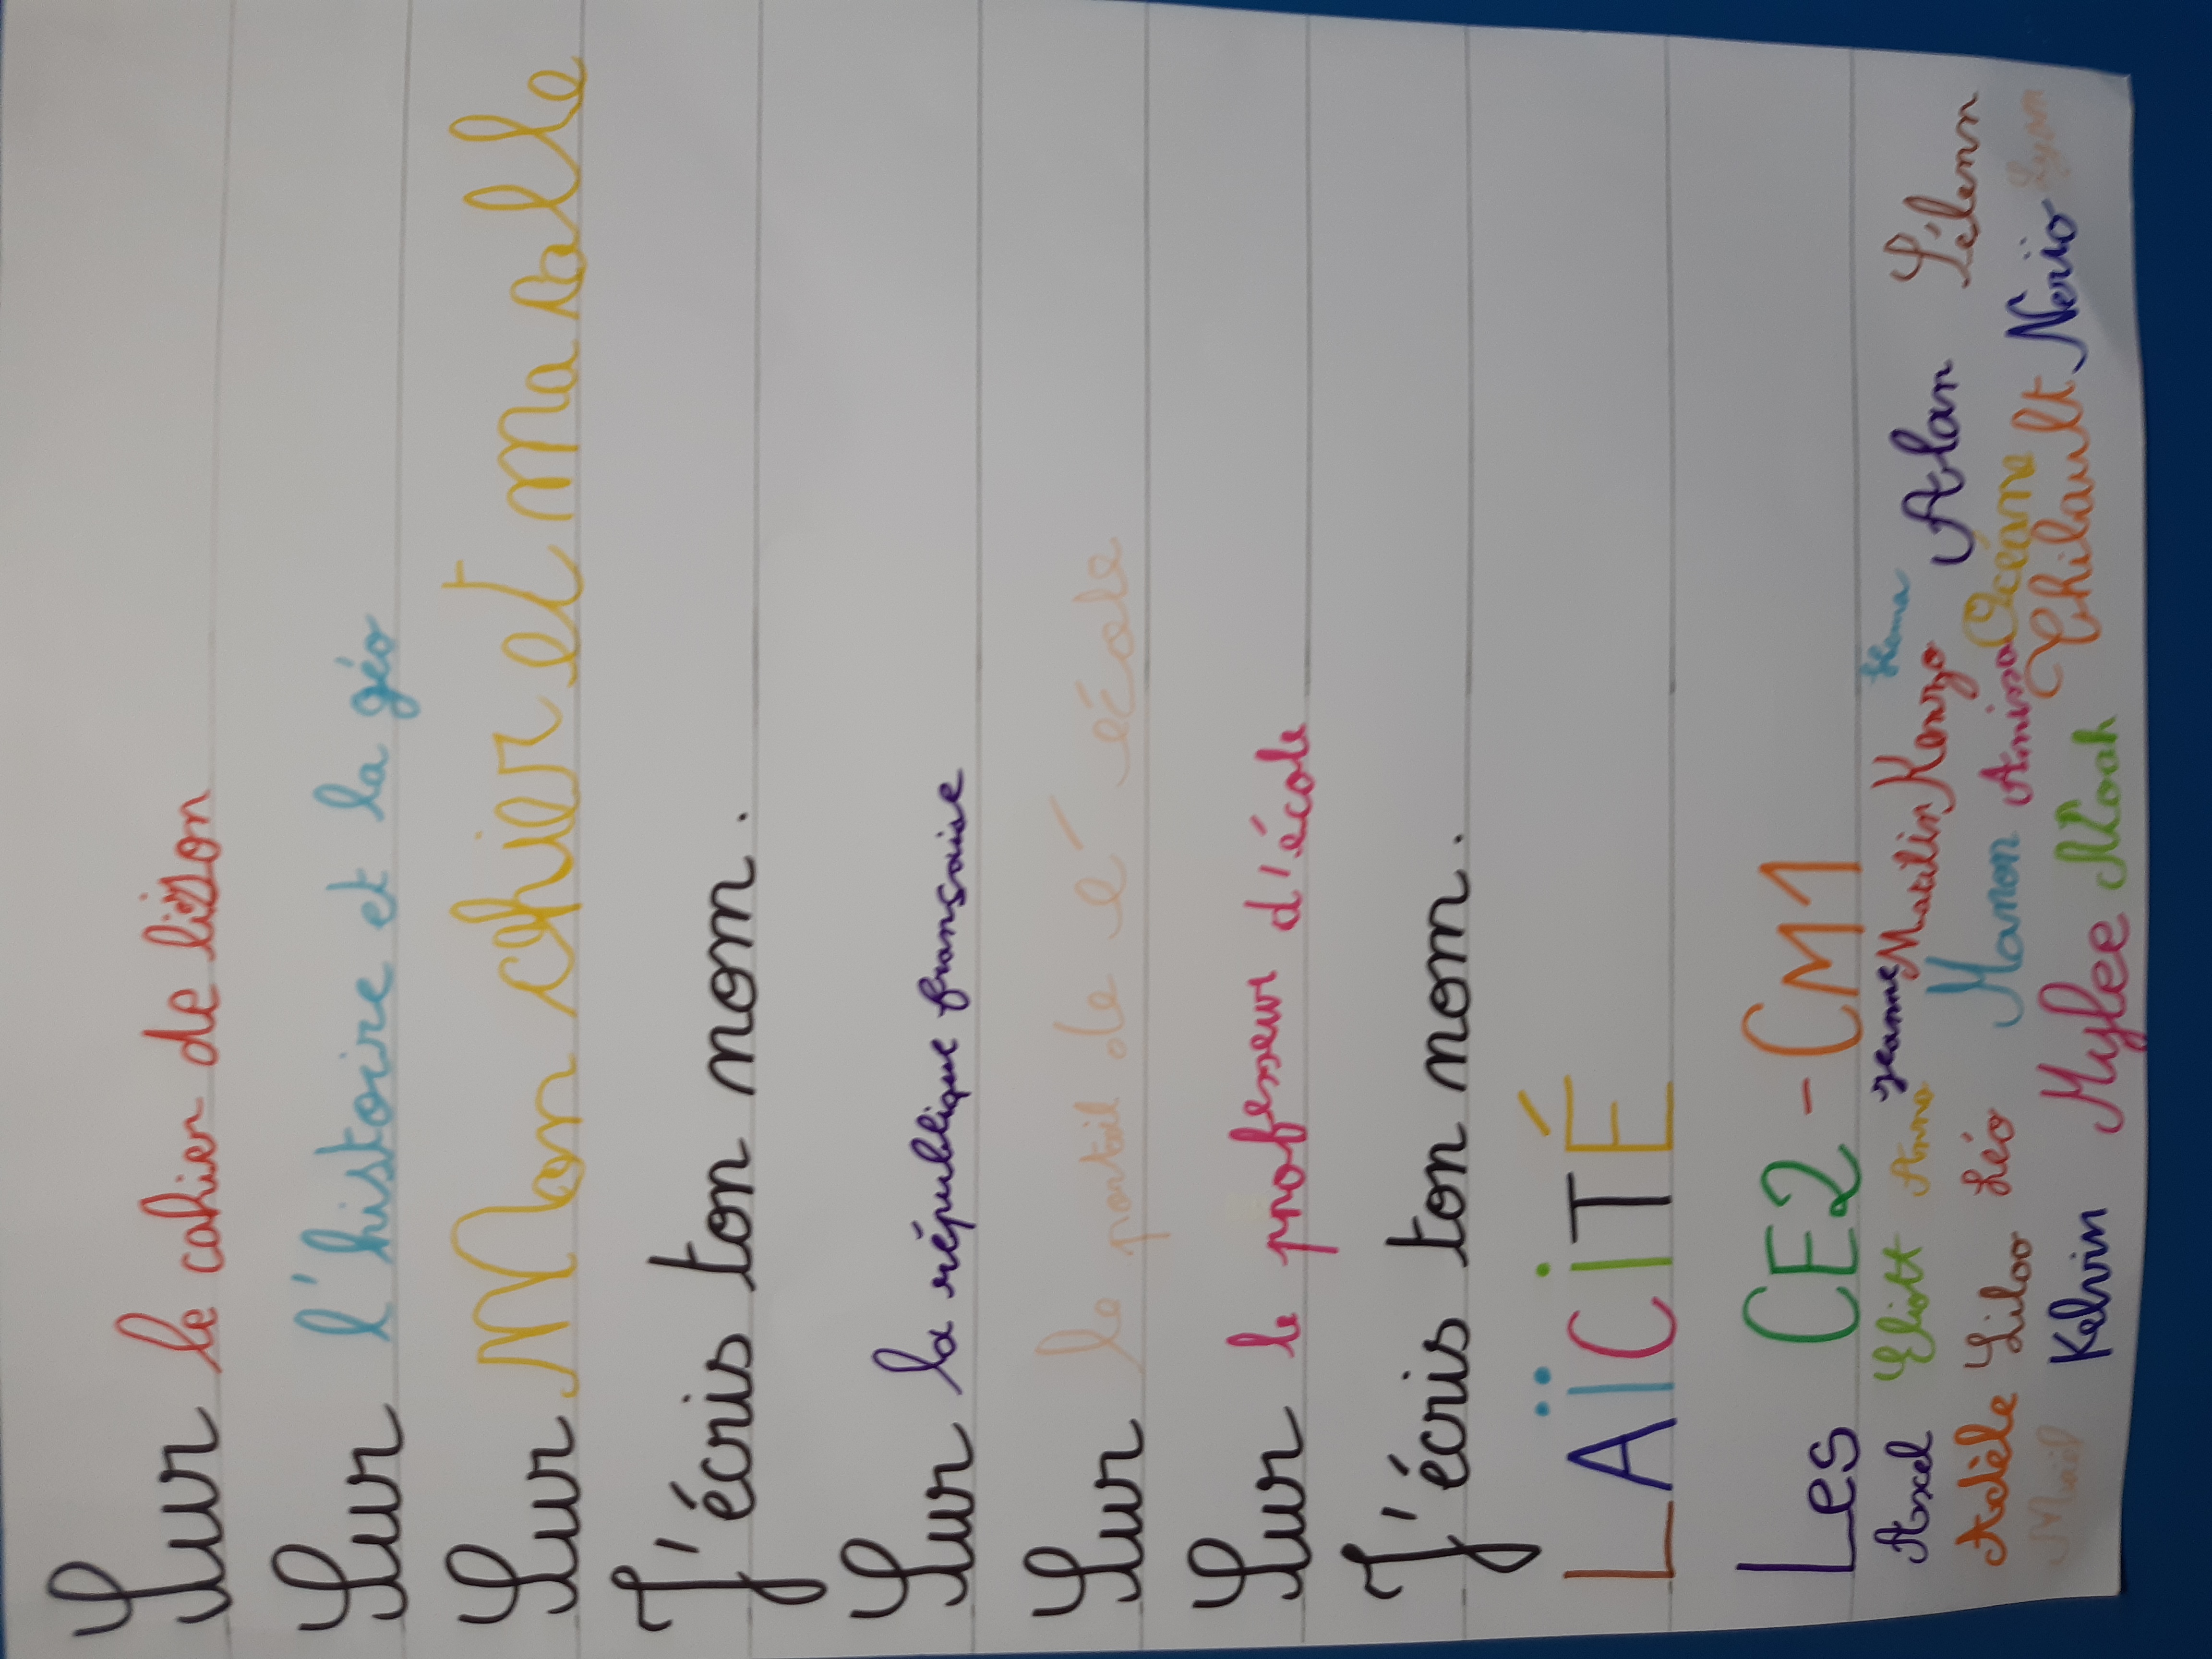 Sur le cahier de lison
Sur l'histoire et la géo
Sur Mon chier et ma salle
J'écris ton nom.
Sur la république française
Sur le portail de l'école
Sur le professeur d'école
J'écris ton nom.
LAÏCiTÉ
Les CE2 - CM1
Axel Eliott Anna Jeanne Matilin Kenzo Alan Lélenn
Adèle Liloo Léo Manon Anissa Océane
Kelvin Mylee Noah Thibault Nerio